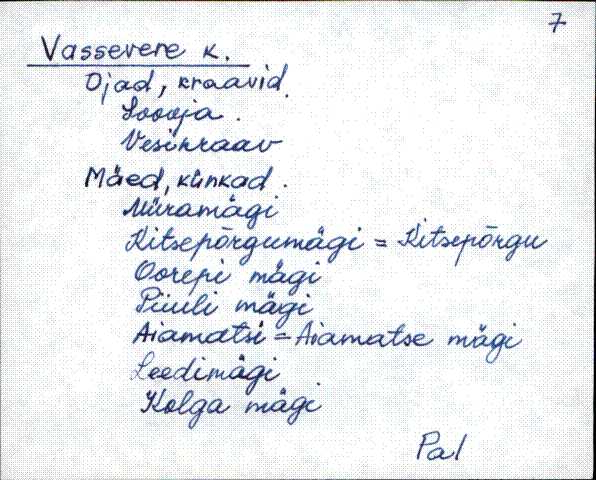 7
Vassevere k.
Ojad, kraavid.
Soooja.
Vesikraav
Mäed, künkad.
Müramägi
Kitsepõrgumägi = Kitsepõrgu
Oorepi mägi
Piiuli mägi
Aiamatsi = Aiamatse mägi
Leedimägi
Kolga mägi
Pal